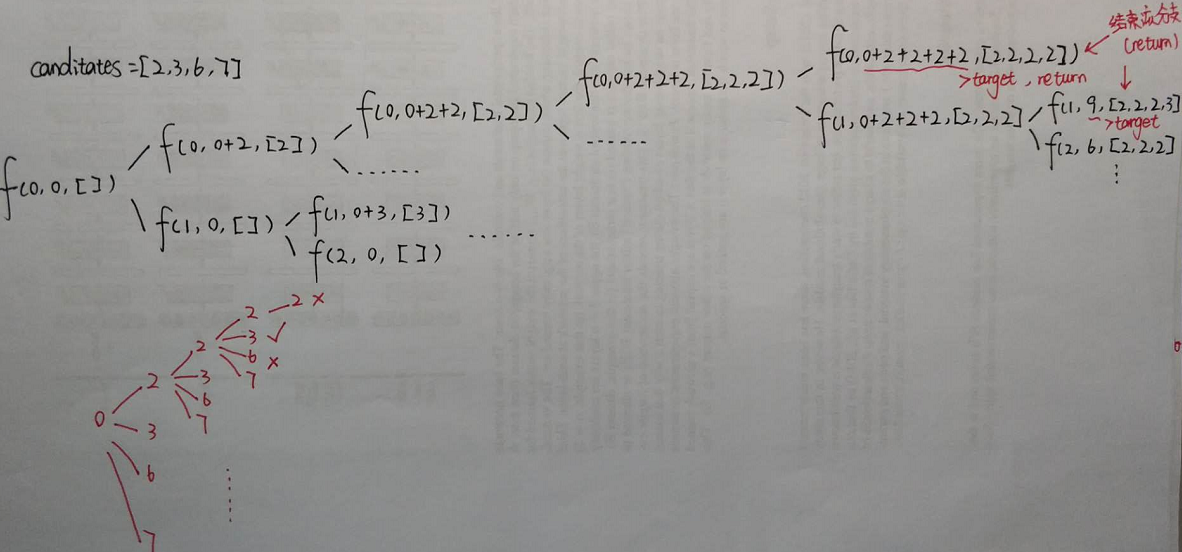 canditates=[2,3,6,7]
f(0,0,[])
f(0,0+2,[2])
f(1,0,[])
f(0,0+2+2,[2,2])
......
f(1,0+3,[3])
f(2,0,[])
......
f(0,0+2+2+2,[2,2,2])
......
f(0,0+2+2+2+2,[2,2,2,2])
>target,return
结束该分支
(return)
f(1,0+2+2+2,[2,2,2])
f(1,9,[2,2,2,3]
>target
f(2,6,[2,2,2]
0
2
3
6
7
2
3
6
7
2
3 ✓
6 ×
7
2 ×